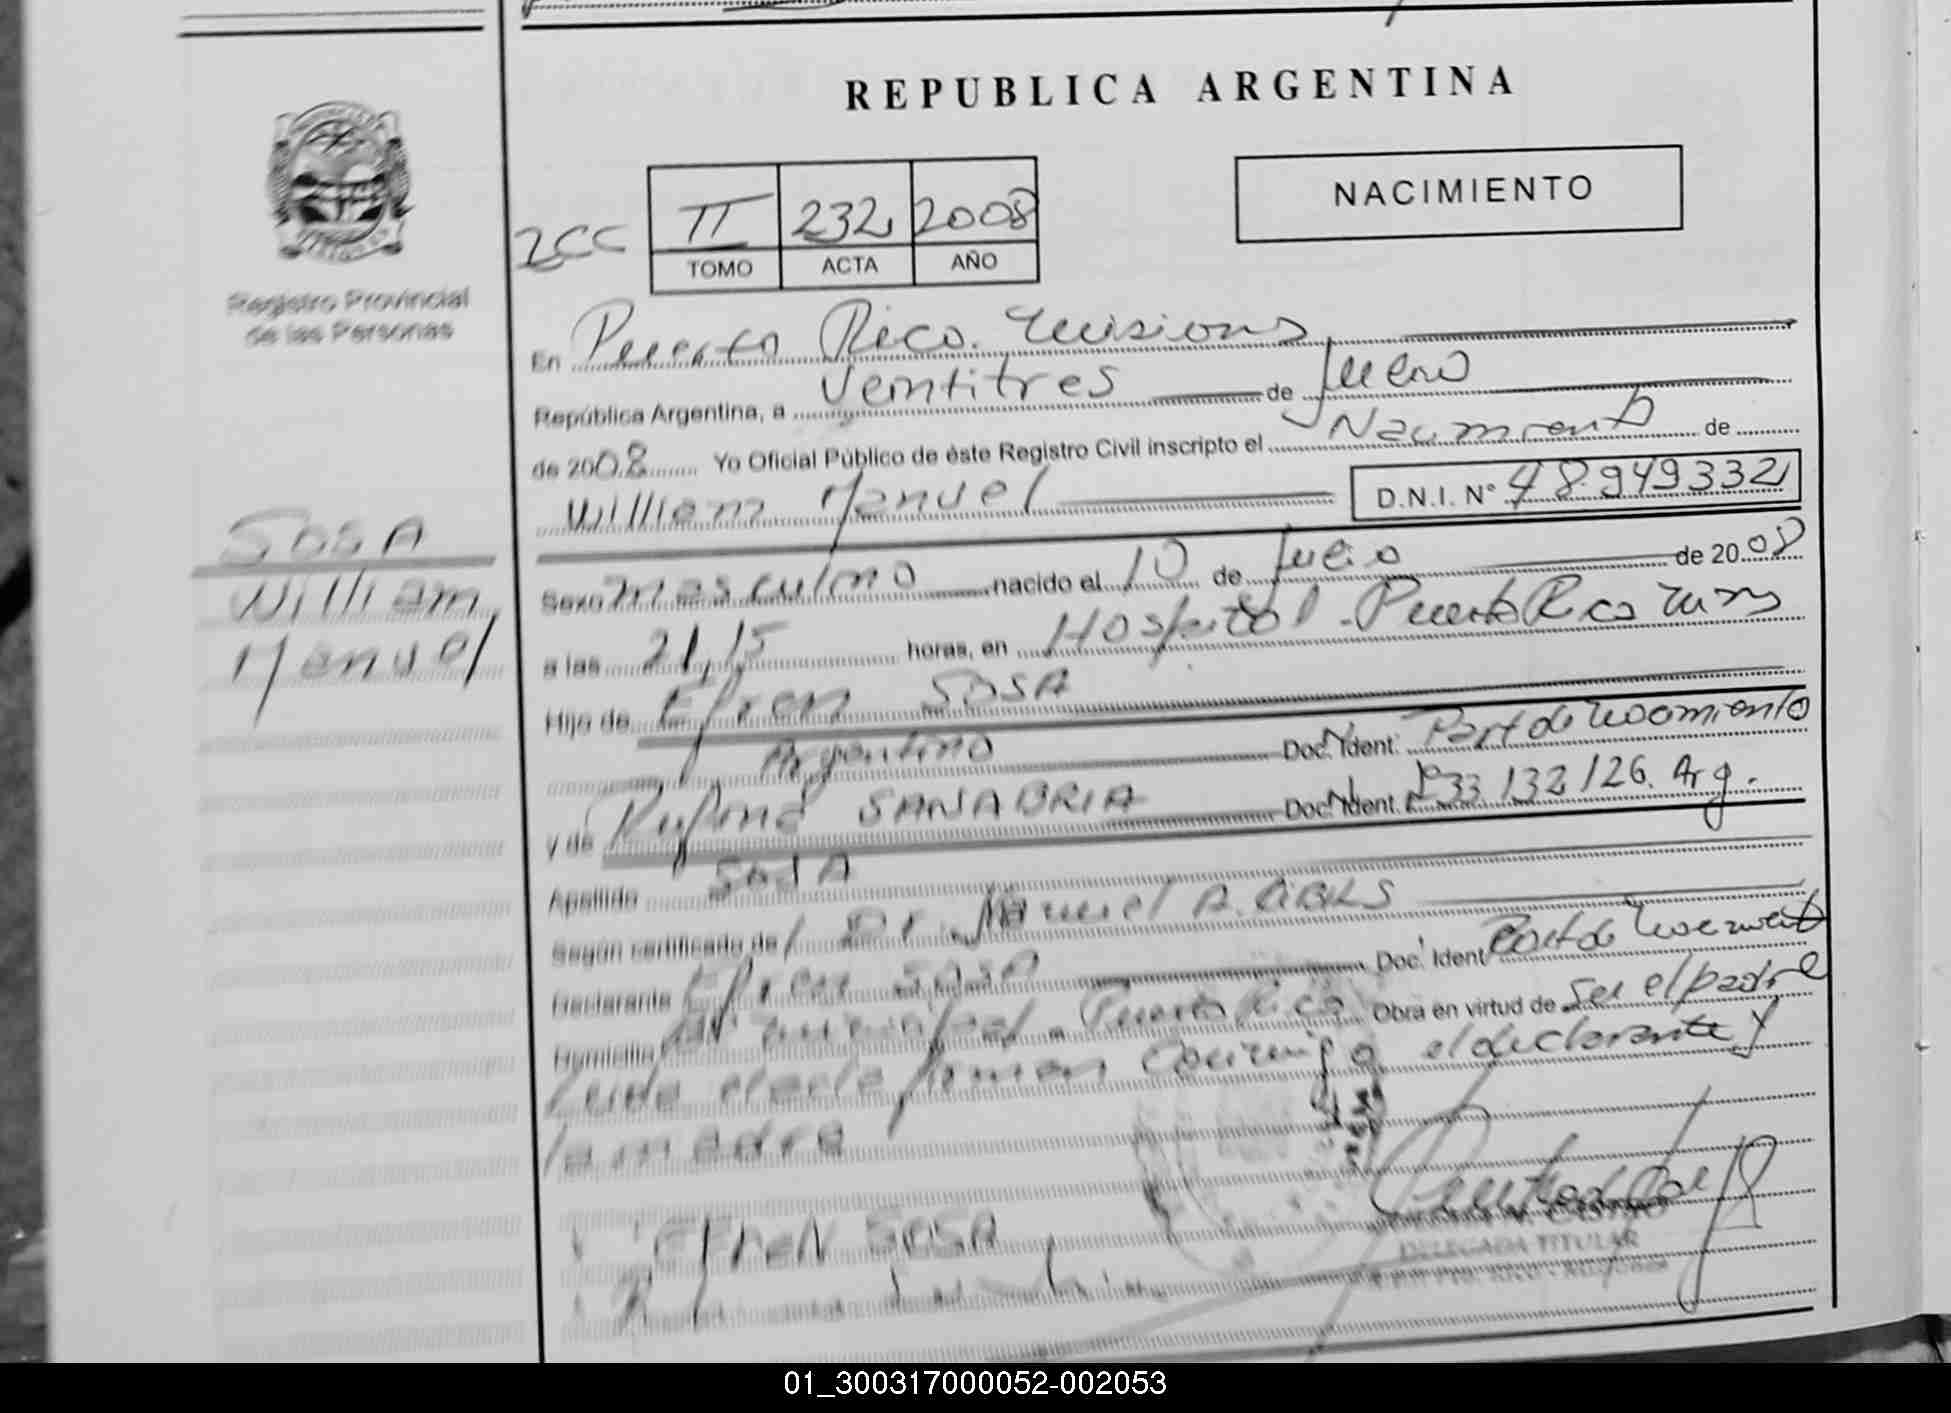 REPUBLICA ARGENTINA
NACIMIENTO
II 232 2008
TOMO ACTA AÑO
Registro Provincial
de las Personas
En Puerto Rico. Misiones
República Argentina, a veintitres de Julio
de 2008 Yo Oficial Público de éste Registro Civil inscripto el Nacimiento de
William Manuel D.N.I. Nº 48949332
SOSA
William
Manuel
Sexo masculino nacido el 10 de Julio de 2008
a las 21,15 horas, en Hospital - Puerto Rico
Hijo de Efren SOSA
Argentino Doc. Ident.
y de Rufina SANABRIA Doc. Ident. Nº 33132126. Arg.
Apellido SOSA
Según certificado de Dr. Manuel A.
Declarante Efren SOSA Doc. Ident
Domicilio Puerto Rico Obra en virtud de ser el padre
Leida el acta firman conmigo el declarante y
la madre
EFREN SOSA
DELEGADA TITULAR
01_300317000052-002053